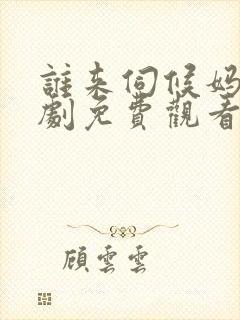 誰来伺候妈
劇免費觀看
顧雲雲